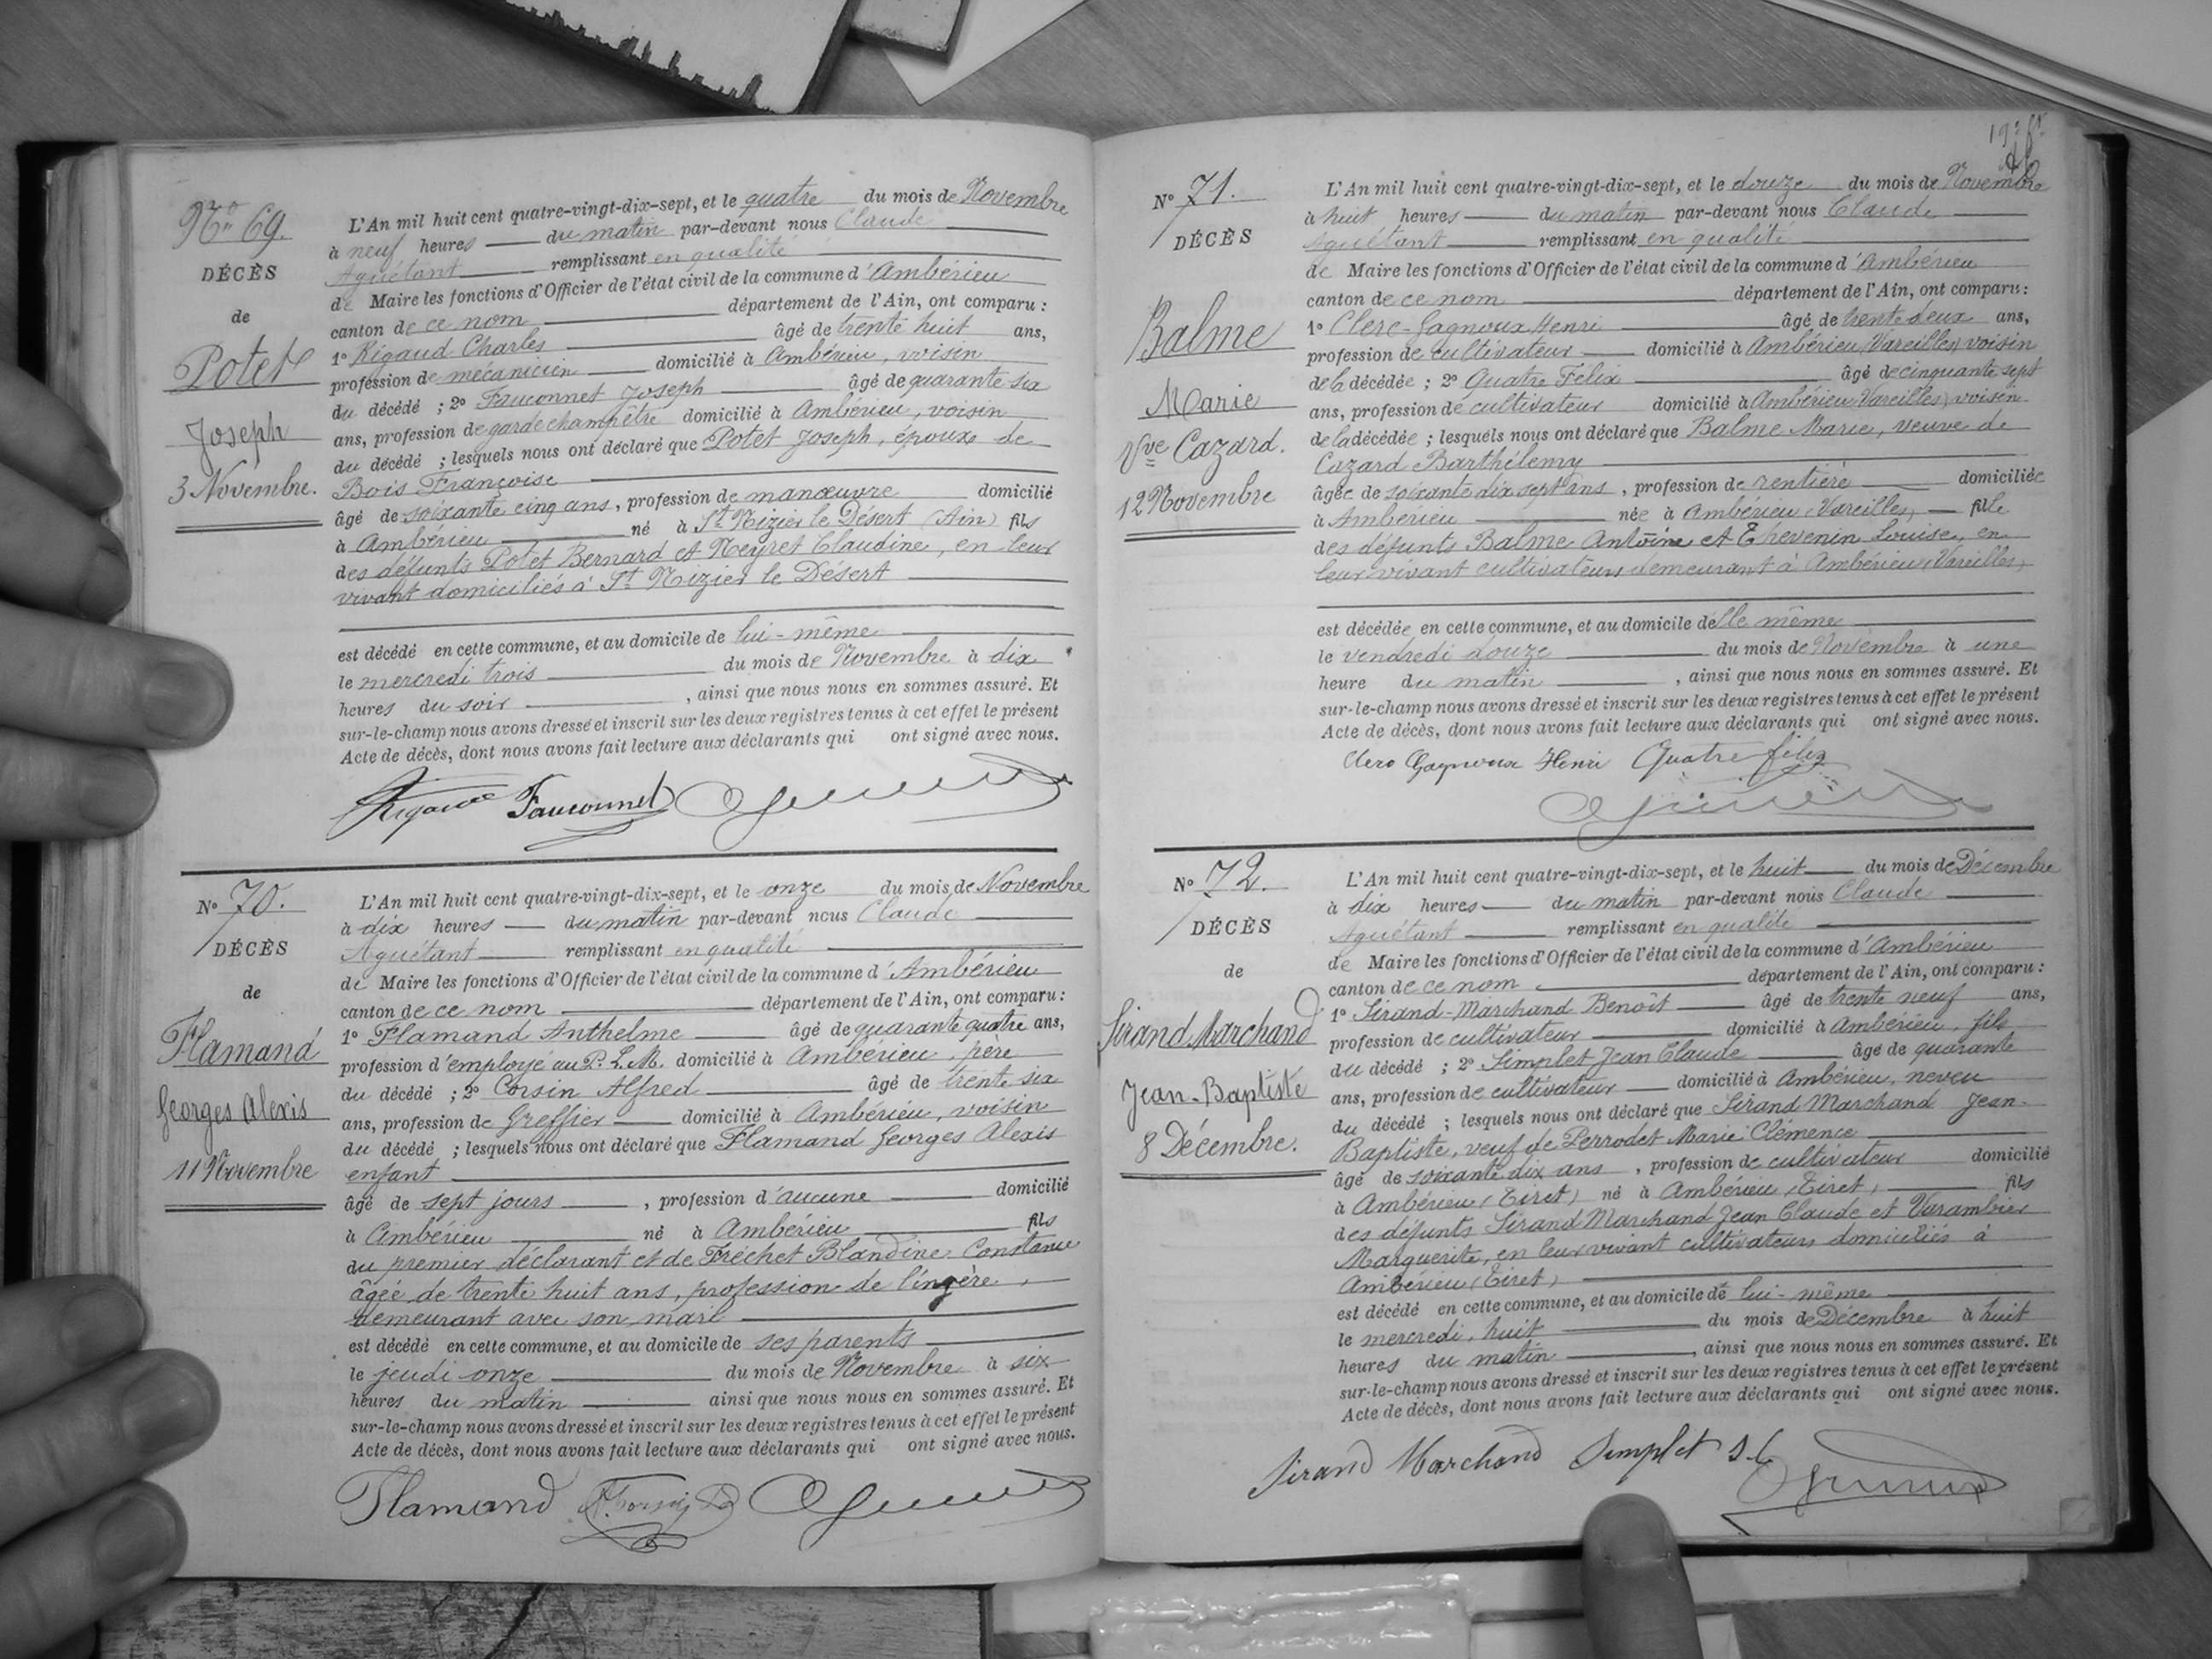 No 69.
DÉCÈS
de
Potet
Joseph
3 Novembre.
L'An mil huit cent quatre-vingt-dix-sept, et le quatre du mois de Novembre
à neuf heures du matin par-devant nous Claude
Aguétant remplissant en qualité
de Maire les fonctions d'Officier de l'état civil de la commune d'Ambérieu
canton de ce nom département de l'Ain, ont comparu :
1º Rigaud Charles âgé de trente huit ans,
profession de mécanicien domicilié à Ambérieu, voisin
du décédé ; 2º Fauconnet Joseph âgé de quarante six
ans, profession de garde champêtre domicilié à Ambérieu, voisin
du décédé ; lesquels nous ont déclaré que Potet Joseph, époux de
Bois Françoise
âgé de soixante cinq ans, profession de manœuvre domicilié
à Ambérieu né à St Nizier le Désert (Ain) fils
des défunts Potet Bernard et Neyret Claudine, en leur
vivant domiciliés à St Nizier le Désert
est décédé en cette commune, et au domicile de lui-même
le mercredi trois du mois de Novembre à dix
heures du soir , ainsi que nous nous en sommes assuré. Et
sur-le-champ nous avons dressé et inscrit sur les deux registres tenus à cet effet le présent
Acte de décès, dont nous avons fait lecture aux déclarants qui ont signé avec nous.
Rigaud Fauconnet
No 70.
DÉCÈS
de
Flamand
Georges Alexis
11 Novembre
L'An mil huit cent quatre-vingt-dix-sept, et le onze du mois de Novembre
à dix heures du matin par-devant nous Claude
Aguétant remplissant en qualité
de Maire les fonctions d'Officier de l'état civil de la commune d'Ambérieu
canton de ce nom département de l'Ain, ont comparu :
1º Flamand Anthelme âgé de quarante quatre ans,
profession d'employé au P. L. M. domicilié à Ambérieu, père
du décédé ; 2º Corsin Alfred âgé de trente six
ans, profession de Greffier domicilié à Ambérieu, voisin
du décédé ; lesquels nous ont déclaré que Flamand Georges Alexis
enfant
âgé de sept jours , profession d'aucune domicilié
à Ambérieu né à Ambérieu fils
du premier déclarant et de Fréchet Blandine Constance
âgée de trente huit ans, profession de lingère,
demeurant avec son mari
est décédé en cette commune, et au domicile de ses parents
le jeudi onze du mois de Novembre à six
heures du matin ainsi que nous nous en sommes assuré. Et
sur-le-champ nous avons dressé et inscrit sur les deux registres tenus à cet effet le présent
Acte de décès, dont nous avons fait lecture aux déclarants qui ont signé avec nous.
Flamand
No 71.
DÉCÈS
Balme
Marie
Vve Cazard.
12 Novembre
L'An mil huit cent quatre-vingt-dix-sept, et le douze du mois de Novembre
à huit heures du matin par-devant nous Claude
Aguétant remplissant en qualité
de Maire les fonctions d'Officier de l'état civil de la commune d'Ambérieu
canton de ce nom département de l'Ain, ont comparu :
1º Clerc-Gagnoux Henri âgé de trente deux ans,
profession de cultivateur domicilié à Ambérieu (Vareilles) voisin
de la décédée ; 2º Quatre Félix âgé de cinquante sept
ans, profession de cultivateur domicilié à Ambérieu (Vareilles) voisin
de la décédée ; lesquels nous ont déclaré que Balme Marie, veuve de
Cazard Barthélemy
âgée de soixante dix sept ans , profession de rentière domiciliée
à Ambérieu née à Ambérieu (Vareilles) fille
des défunts Balme Antoine et Thevenin Louise, en
leur vivant cultivateurs demeurant à Ambérieu (Vareilles)
est décédée en cette commune, et au domicile d'elle même
le vendredi douze du mois de Novembre à une
heure du matin , ainsi que nous nous en sommes assuré. Et
sur-le-champ nous avons dressé et inscrit sur les deux registres tenus à cet effet le présent
Acte de décès, dont nous avons fait lecture aux déclarants qui ont signé avec nous.
Clerc Gagnoux Henri Quatre félix
No 72.
DÉCÈS
de
Sirand Marchand
Jean-Baptiste
8 Décembre.
L'An mil huit cent quatre-vingt-dix-sept, et le huit du mois de Décembre
à dix heures du matin par-devant nous Claude
Aguétant remplissant en qualité
de Maire les fonctions d'Officier de l'état civil de la commune d'Ambérieu
canton de ce nom département de l'Ain, ont comparu :
1º Sirand-Marchand Benoît âgé de trente neuf ans,
profession de cultivateur domicilié à Ambérieu, fils
du décédé ; 2º Simplet Jean Claude âgé de quarante
ans, profession de cultivateur domicilié à Ambérieu, neveu
du décédé ; lesquels nous ont déclaré que Sirand Marchand Jean-
Baptiste, veuf de Perrodet Marie Clémence
âgé de soixante dix ans , profession de cultivateur domicilié
à Ambérieu (Tiret) né à Ambérieu (Tiret) fils
des défunts Sirand Marchand Jean Claude et Varambier
Marguerite, en leur vivant cultivateurs domiciliés à
Ambérieu (Tiret)
est décédé en cette commune, et au domicile de lui-même
le mercredi, huit du mois de Décembre à huit
heures du matin , ainsi que nous nous en sommes assuré. Et
sur-le-champ nous avons dressé et inscrit sur les deux registres tenus à cet effet le présent
Acte de décès, dont nous avons fait lecture aux déclarants qui ont signé avec nous.
Sirand Marchand Simplet J. C